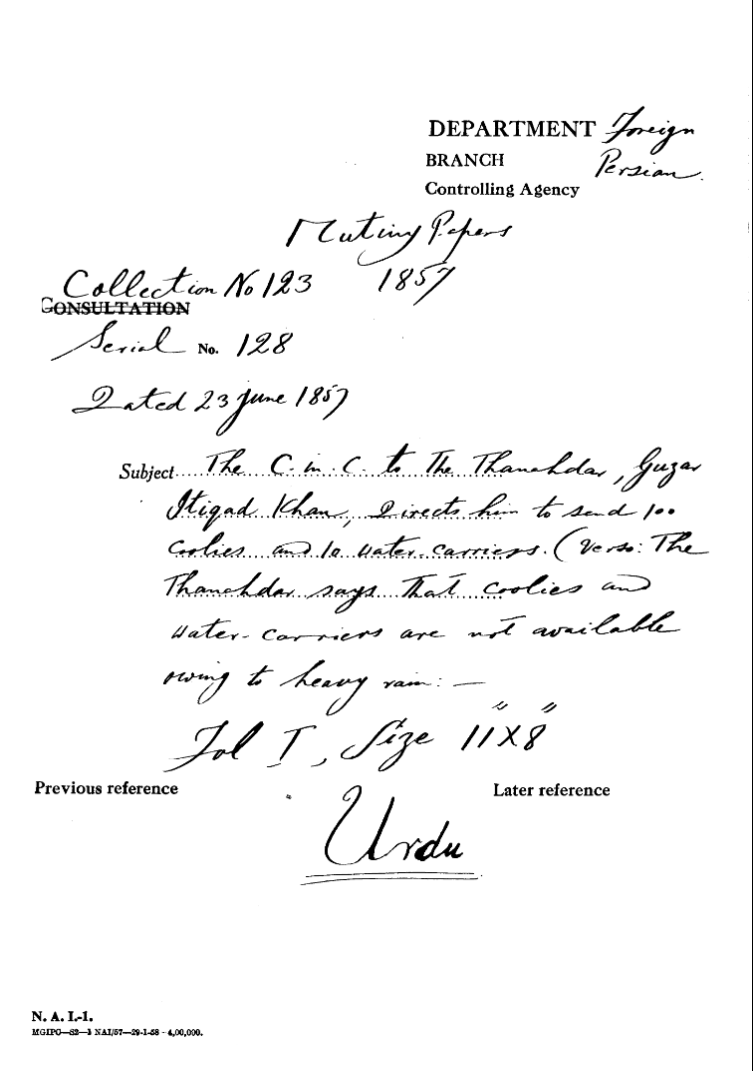 DEPARTMENT Foreign
BRANCH Persian.
Controlling Agency
Mutiny Papers
Collection No 123 1857
CONSULTATION
Serial No. 128
Dated 23 June 1857
Subject... The C. in. C. to The Thanahdar, Guzar
Itiqad Khan, Directs him to send 100
coolies and 10 water-carriers. (Verso: The
Thanahdar says that coolies and
water-carriers are not available
owing to heavy rain: —
Fol I, Size 11" X 8"
Previous reference Later reference
Urdu
N. A. I.-1.
MGIPC—S2—3 NAI/57—29-1-58 - 4,00,000.